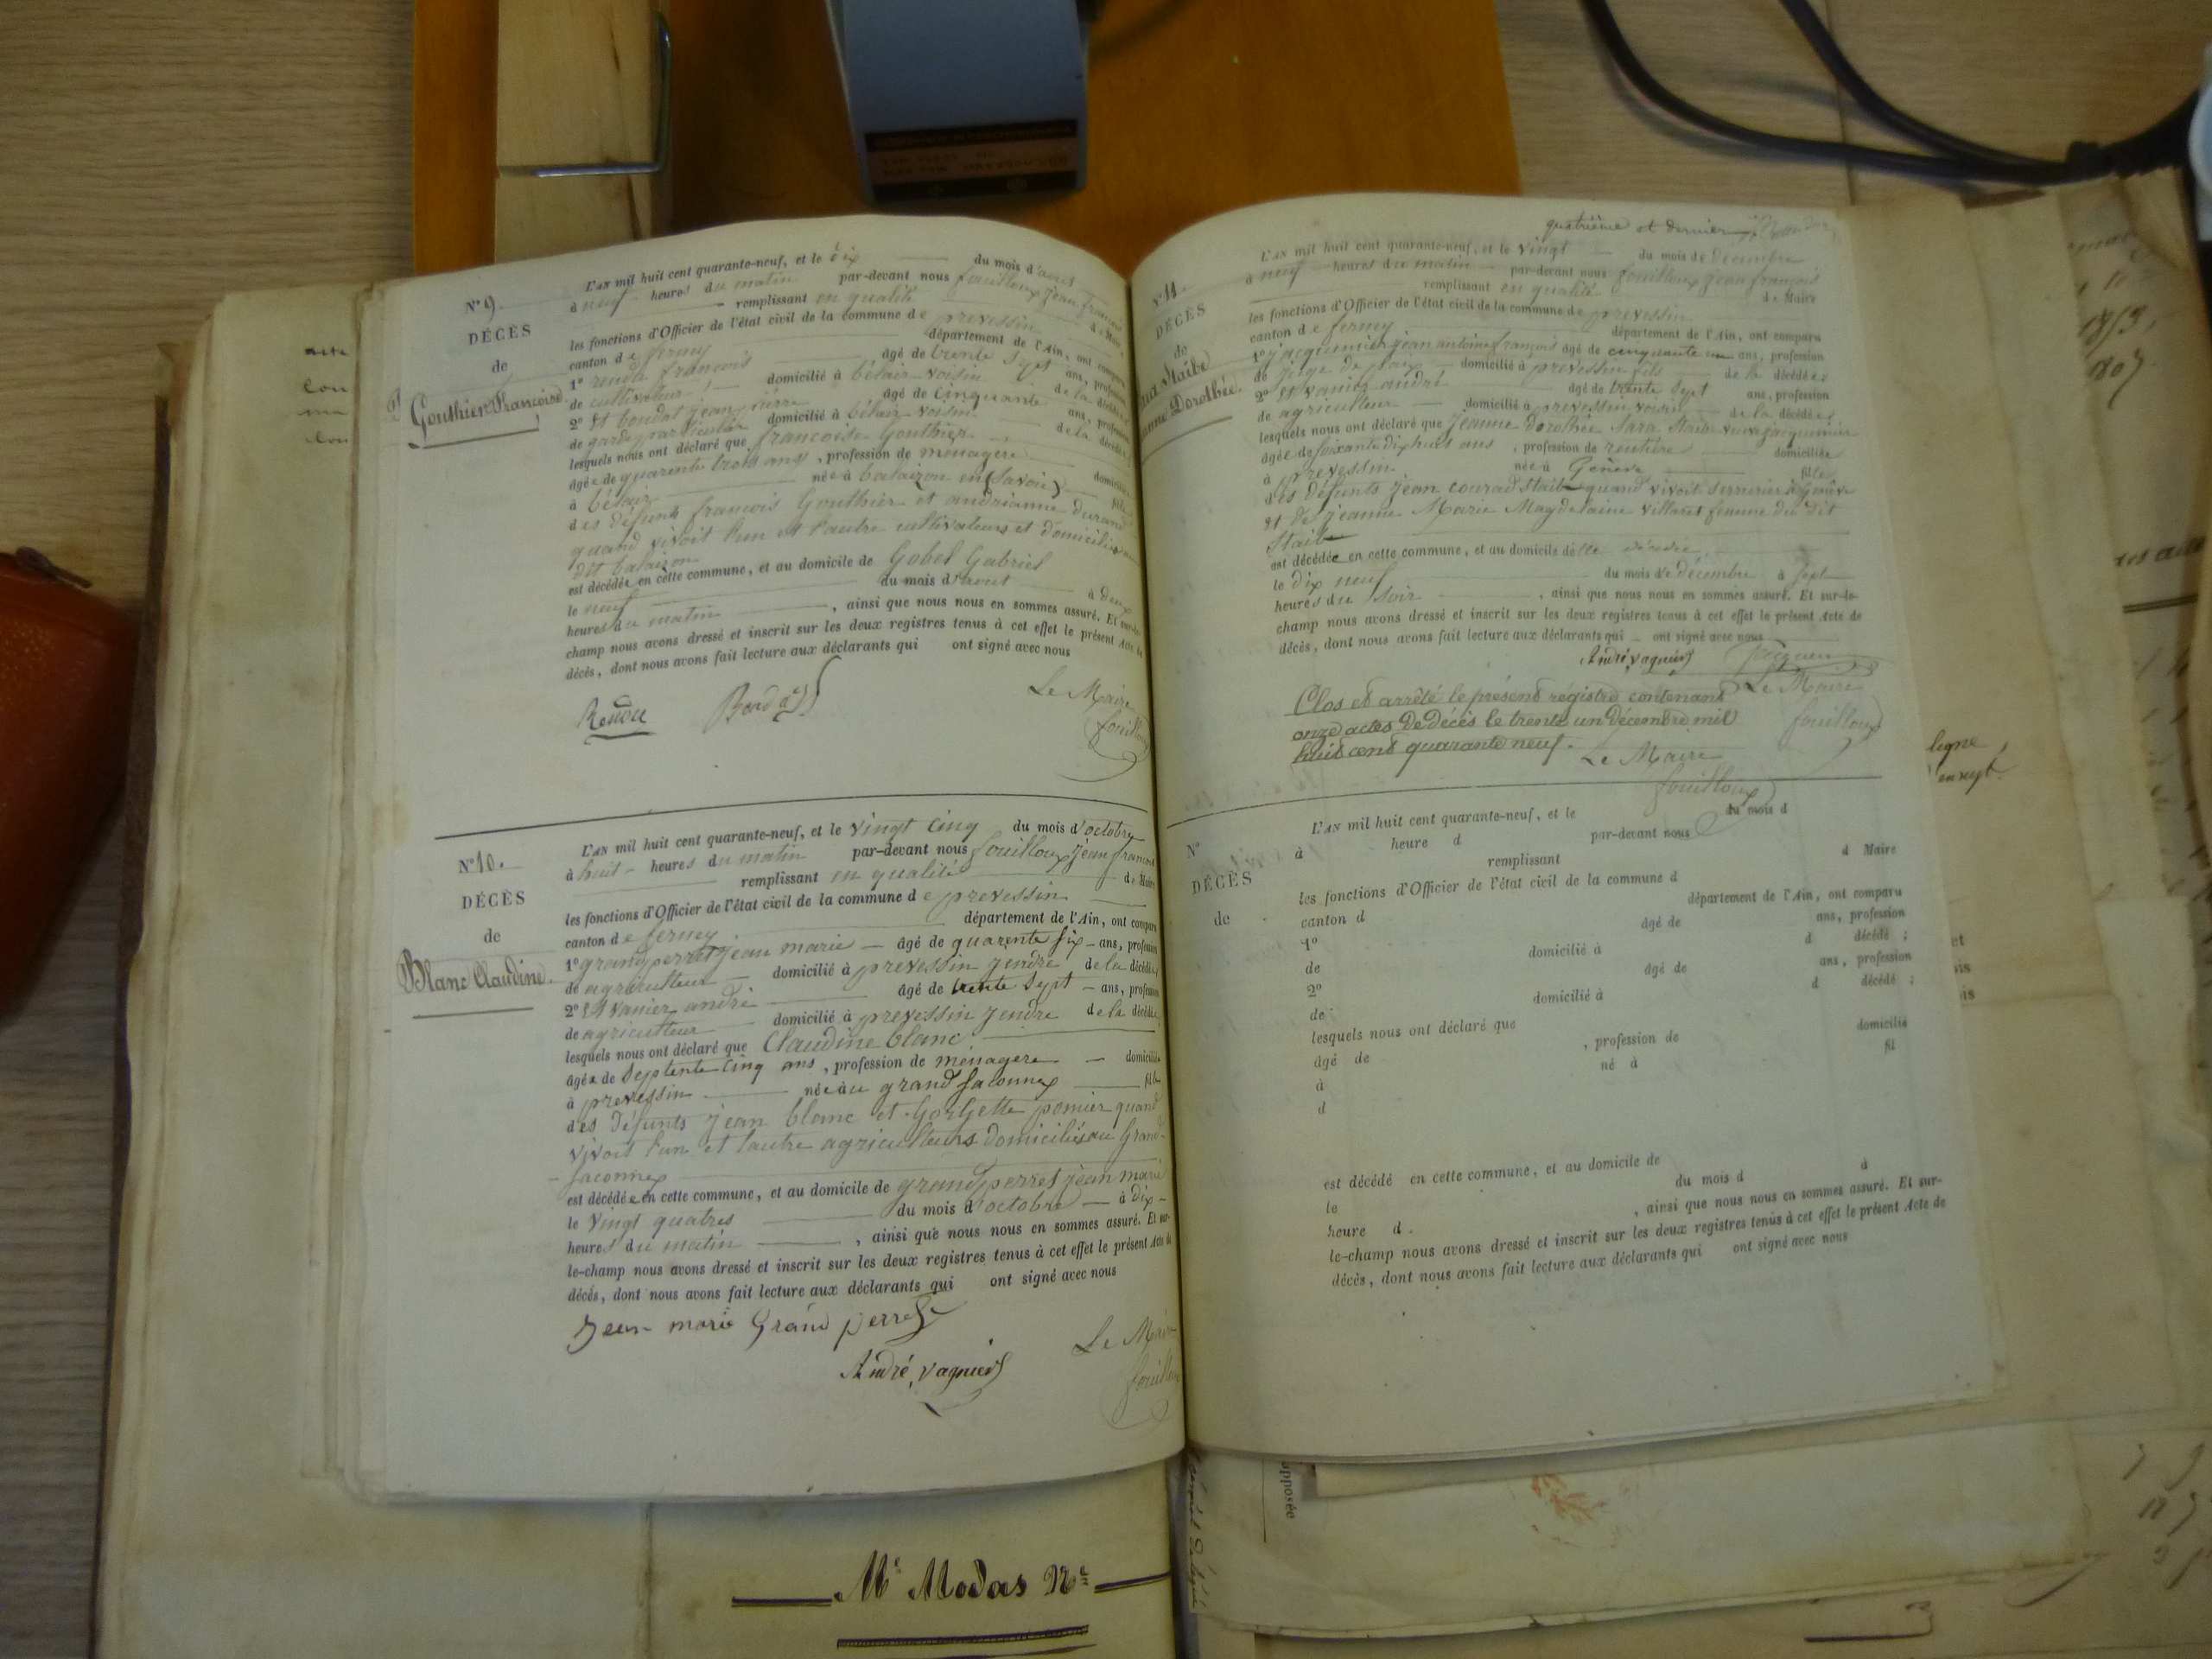 N° 9.
DÉCÈS
de
Gouthier Françoise
L'AN mil huit cent quarante-neuf, et le dix du mois d'aout
à neuf heures du matin par-devant nous fouilloux jean francois
remplissant en qualité de Maire
les fonctions d'Officier de l'état civil de la commune de prevessin
canton de ferney département de l'Ain, ont comparu
1° rendu francois âgé de trente sept ans, profession
de cultivateur domicilié à bélair voisin de la décédée
2° Et boudat jean pierre âgé de Cinquante ans, profession
de garde particulier domicilié à bélair voisin de la décédée
lesquels nous ont déclaré que francoise Gouthier
âgée de quarente trois ans, profession de menagere domiciliée
à bélair née à balaizon en (Savoie) fille
des défunts francois Gouthier et andrianne durand
quand vivoit l'un et l'autre cultivateurs et domiciliés au
dit balaizon
est décédée en cette commune, et au domicile de Gobel Gabriel
le neuf du mois d'aout à deux
heures du matin, ainsi que nous nous en sommes assuré. Et sur-le-
champ nous avons dressé et inscrit sur les deux registres tenus à cet effet le présent Acte de
décès, dont nous avons fait lecture aux déclarants qui ont signé avec nous
Rendu Boudat Le Maire
fouilloux
N° 10.
DÉCÈS
de
Blanc Claudine.
L'AN mil huit cent quarante-neuf, et le vingt cinq du mois d'octobre
à huit heures du matin par-devant nous fouilloux jean francois
remplissant en qualité de Maire
les fonctions d'Officier de l'état civil de la commune de prevessin
canton de ferney département de l'Ain, ont comparu
1° grandperret jean marie âgé de quarente six ans, profession
de agriculteur domicilié à prevessin jendre de la décédée
2° Et vanier andré âgé de trente sept ans, profession
de agriculteur domicilié à prevessin jendre de la décédée
lesquels nous ont déclaré que Claudine blanc
âgée de septente cinq ans, profession de ménagere domiciliée
à prevessin née au grand saconnex fille
des défunts jean blanc et Gorgette pomier quand
vivoit l'un et l'autre agriculteurs domiciliés au Grand-
saconnex
est décédée en cette commune, et au domicile de grandperret jean marie
le vingt quatres du mois d'octobre à dix
heures du matin, ainsi que nous nous en sommes assuré. Et sur-
le-champ nous avons dressé et inscrit sur les deux registres tenus à cet effet le présent Acte de
décès, dont nous avons fait lecture aux déclarants qui ont signé avec nous
Jean marie Grand perret
André, vagnier Le Maire
fouilloux
quatrième et dernier
N° 11.
DÉCÈS
de
Staibe
Jeanne Dorothée.
L'AN mil huit cent quarante-neuf, et le vingt du mois de Décembre
à neuf heures du matin par-devant nous fouilloux jean francois
remplissant en qualité de Maire
les fonctions d'Officier de l'état civil de la commune de prevessin
canton de ferney département de l'Ain, ont comparu
1° jacquemier jean antoine francois âgé de cinquante un ans, profession
de juge de paix domicilié à prevessin fils de la décédée
2° Et vanier andré âgé de trente sept ans, profession
de agriculteur domicilié à prevessin voisin de la décédée
lesquels nous ont déclaré que jeanne dorothée Sara Staib veuve jacquemier
âgée de soixante dix huit ans, profession de rentière domiciliée
à prevessin née à Genève fille
des défunts jean conrad Staib quand vivoit serrurier à Genève
Et de jeanne Marie Magdelaine villaret femme du dit
Staib
est décédée en cette commune, et au domicile de
le dix neuf du mois de décembre à sept
heures du soir, ainsi que nous nous en sommes assuré. Et sur-le-
champ nous avons dressé et inscrit sur les deux registres tenus à cet effet le présent Acte de
décès, dont nous avons fait lecture aux déclarants qui ont signé avec nous
André, vagnier
Le Maire
fouilloux
Clos et arrêté le présent régistre contenant
onze actes de décès le trente un décembre mil
huit cent quarante neuf.
Le Maire
fouilloux
N°
DÉCÈS
de
L'AN mil huit cent quarante-neuf, et le du mois d
à heure d par-devant nous
remplissant d Maire
les fonctions d'Officier de l'état civil de la commune d
canton d département de l'Ain, ont comparu
1° âgé de ans, profession
de domicilié à d décédé ;
2° âgé de ans, profession
de domicilié à d décédé ;
lesquels nous ont déclaré que
âgé de , profession de domicilié
à né à fil
d
est décédé en cette commune, et au domicile de
le du mois d à
heure d , ainsi que nous nous en sommes assuré. Et sur-
le-champ nous avons dressé et inscrit sur les deux registres tenus à cet effet le présent Acte de
décès, dont nous avons fait lecture aux déclarants qui ont signé avec nous
ligne,
Me Modas Nre
apposée